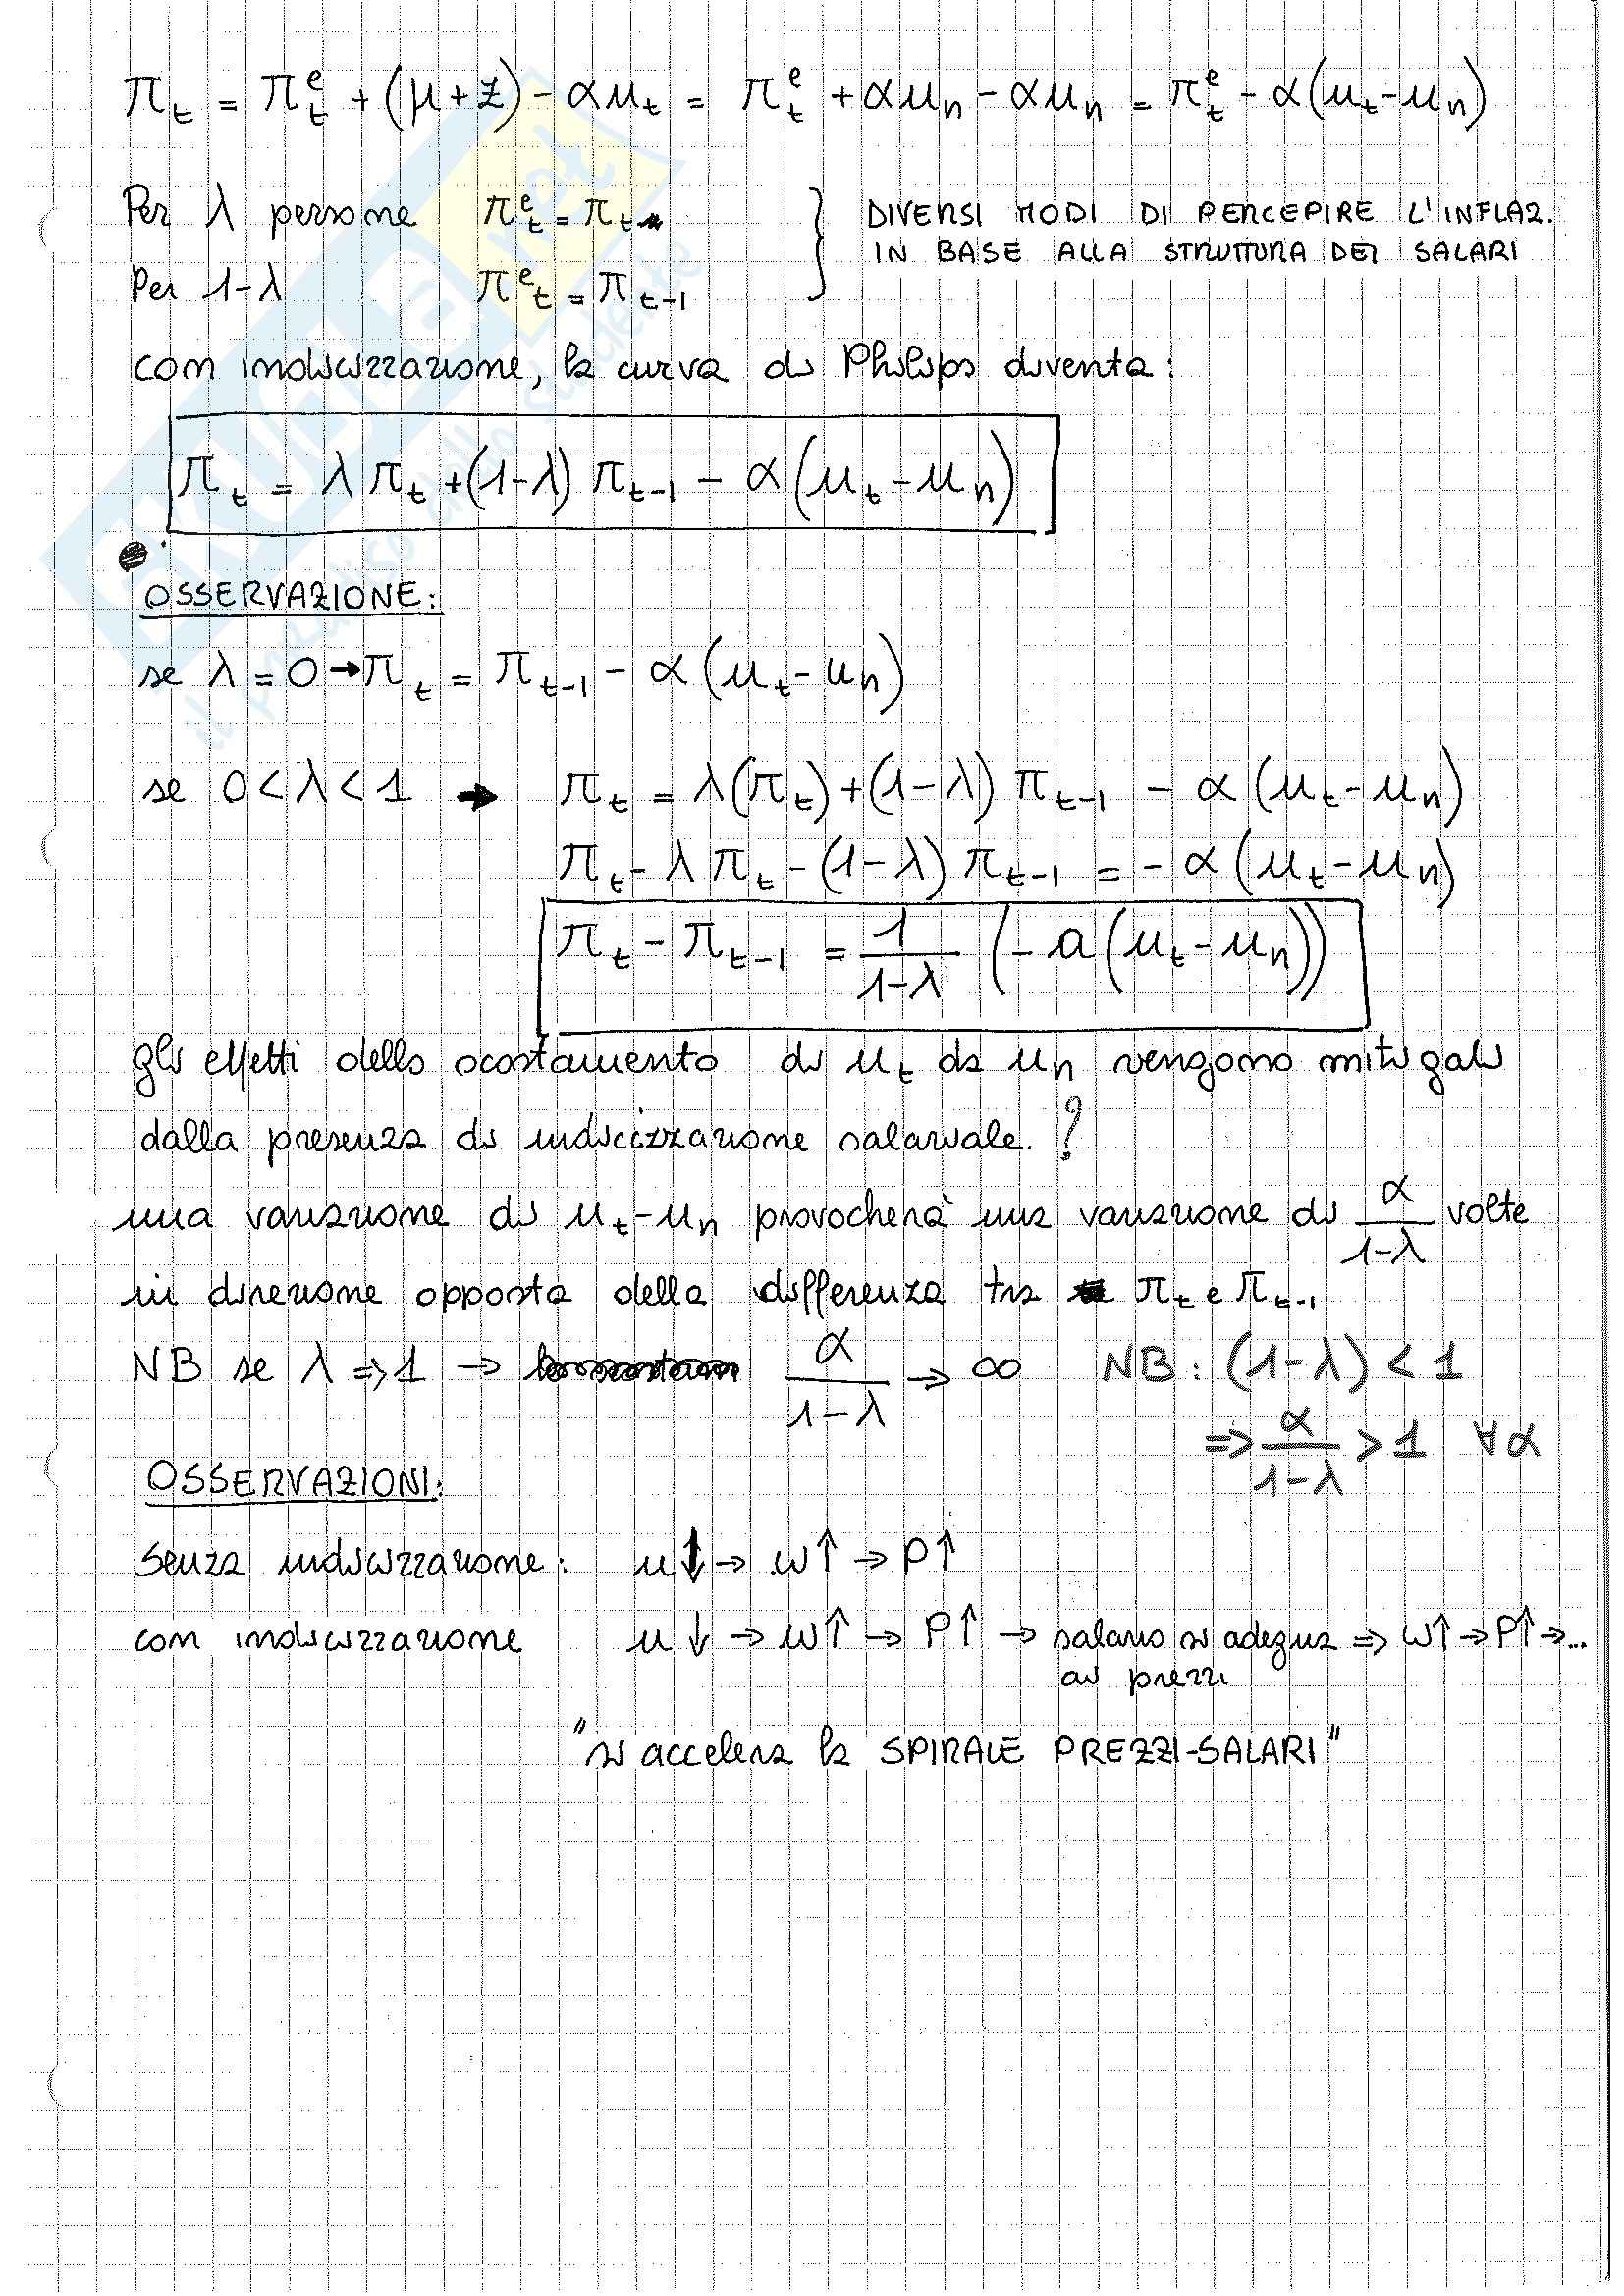 π_t = π_t^e + (μ+z) - αu_t = π_t^e + αu_n - αu_n = π_t^e - α(u_t-u_n)
Per λ persone π_t^e = π_t
DIVERSI MODI DI PERCEPIRE L'INFLAZ.
IN BASE ALLA STRUTTURA DEI SALARI
Per 1-λ π_t^e = π_{t-1}
con indicizzazione, la curva di Philips diventa:
π_t = λπ_t + (1-λ) π_{t-1} - α(u_t-u_n)
OSSERVAZIONE:
se λ = 0 → π_t = π_{t-1} - α(u_t-u_n)
se 0 < λ < 1 → π_t = λ(π_t) + (1-λ) π_{t-1} - α(u_t-u_n)
π_t - λπ_t - (1-λ) π_{t-1} = - α(u_t-u_n)
π_t - π_{t-1} = 1/(1-λ) (-a(u_t-u_n))
gli effetti dello scostamento di u_t da u_n vengono mitigati
dalla presenza di indicizzazione salariale. ?
una variazione di u_t-u_n provocherà una variazione di α/(1-λ) volte
in direzione opposta della differenza tra π_t e π_{t-1}
NB se λ ⇒ 1 → α/(1-λ) → ∞ NB: (1-λ) < 1
⇒ α/(1-λ) > 1 ∀α
OSSERVAZIONI:
Senza indicizzazione: u↓ → w↑ → P↑
con indicizzazione u↓ → w↑ → P↑ → salario si adegua ⇒ w↑ → P↑ → ...
ai prezzi
"si accelera la SPIRALE PREZZI-SALARI"